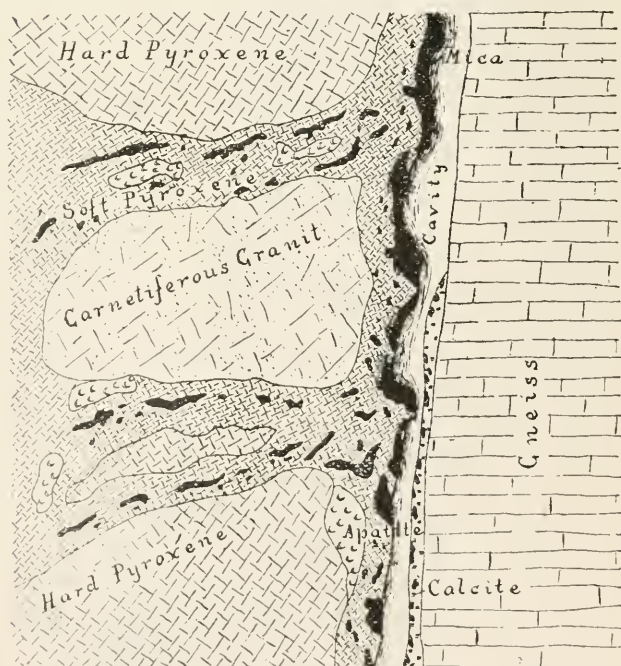 Hard Pyroxene
Mica
Soft Pyroxene
Cavity
Garnetiferous Granit
Gneiss
Hard Pyroxene
Apatite
Calcite